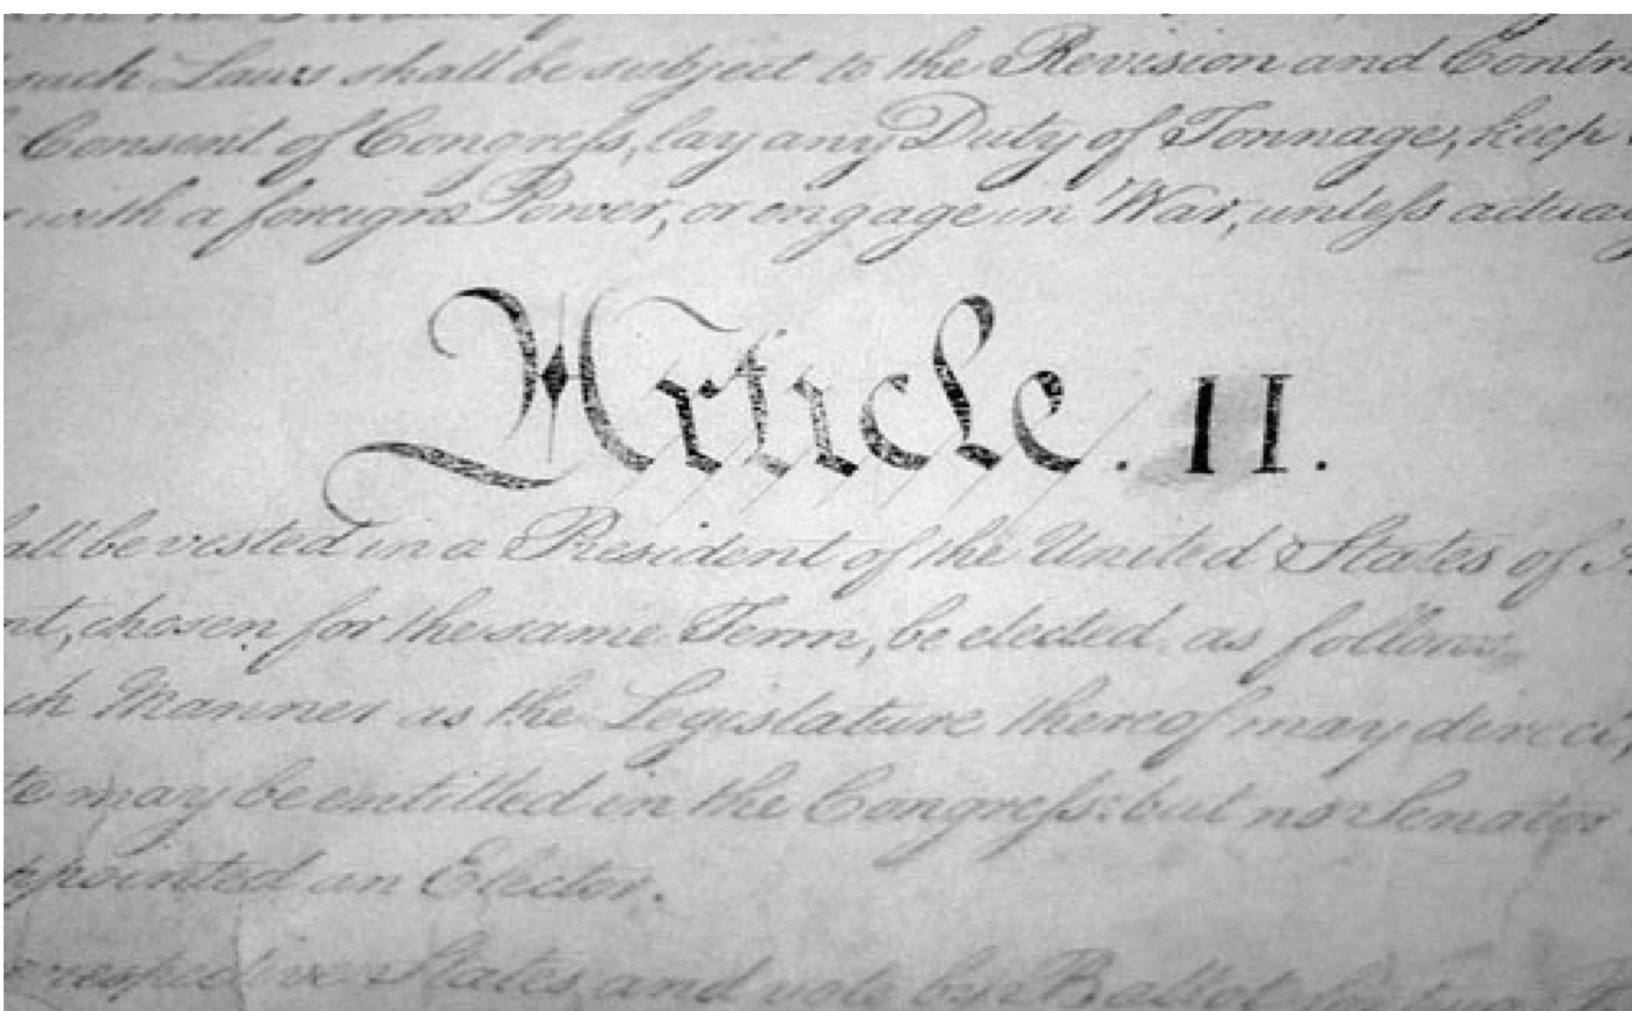 such Laws shall be subject to the Revision and Contro
Consent of Congress, lay any Duty of Tonnage, keep
with a foreign Power, or engage in War, unless actua
Article. II.
all be vested in a President of the United States of A
nt, chosen for the same Term, be elected, as follows
ch Manner as the Legislature thereof may direct,
te may be entitled in the Congress: but no Senator
appointed an Elector.
respective States, and vote by Ballot for two